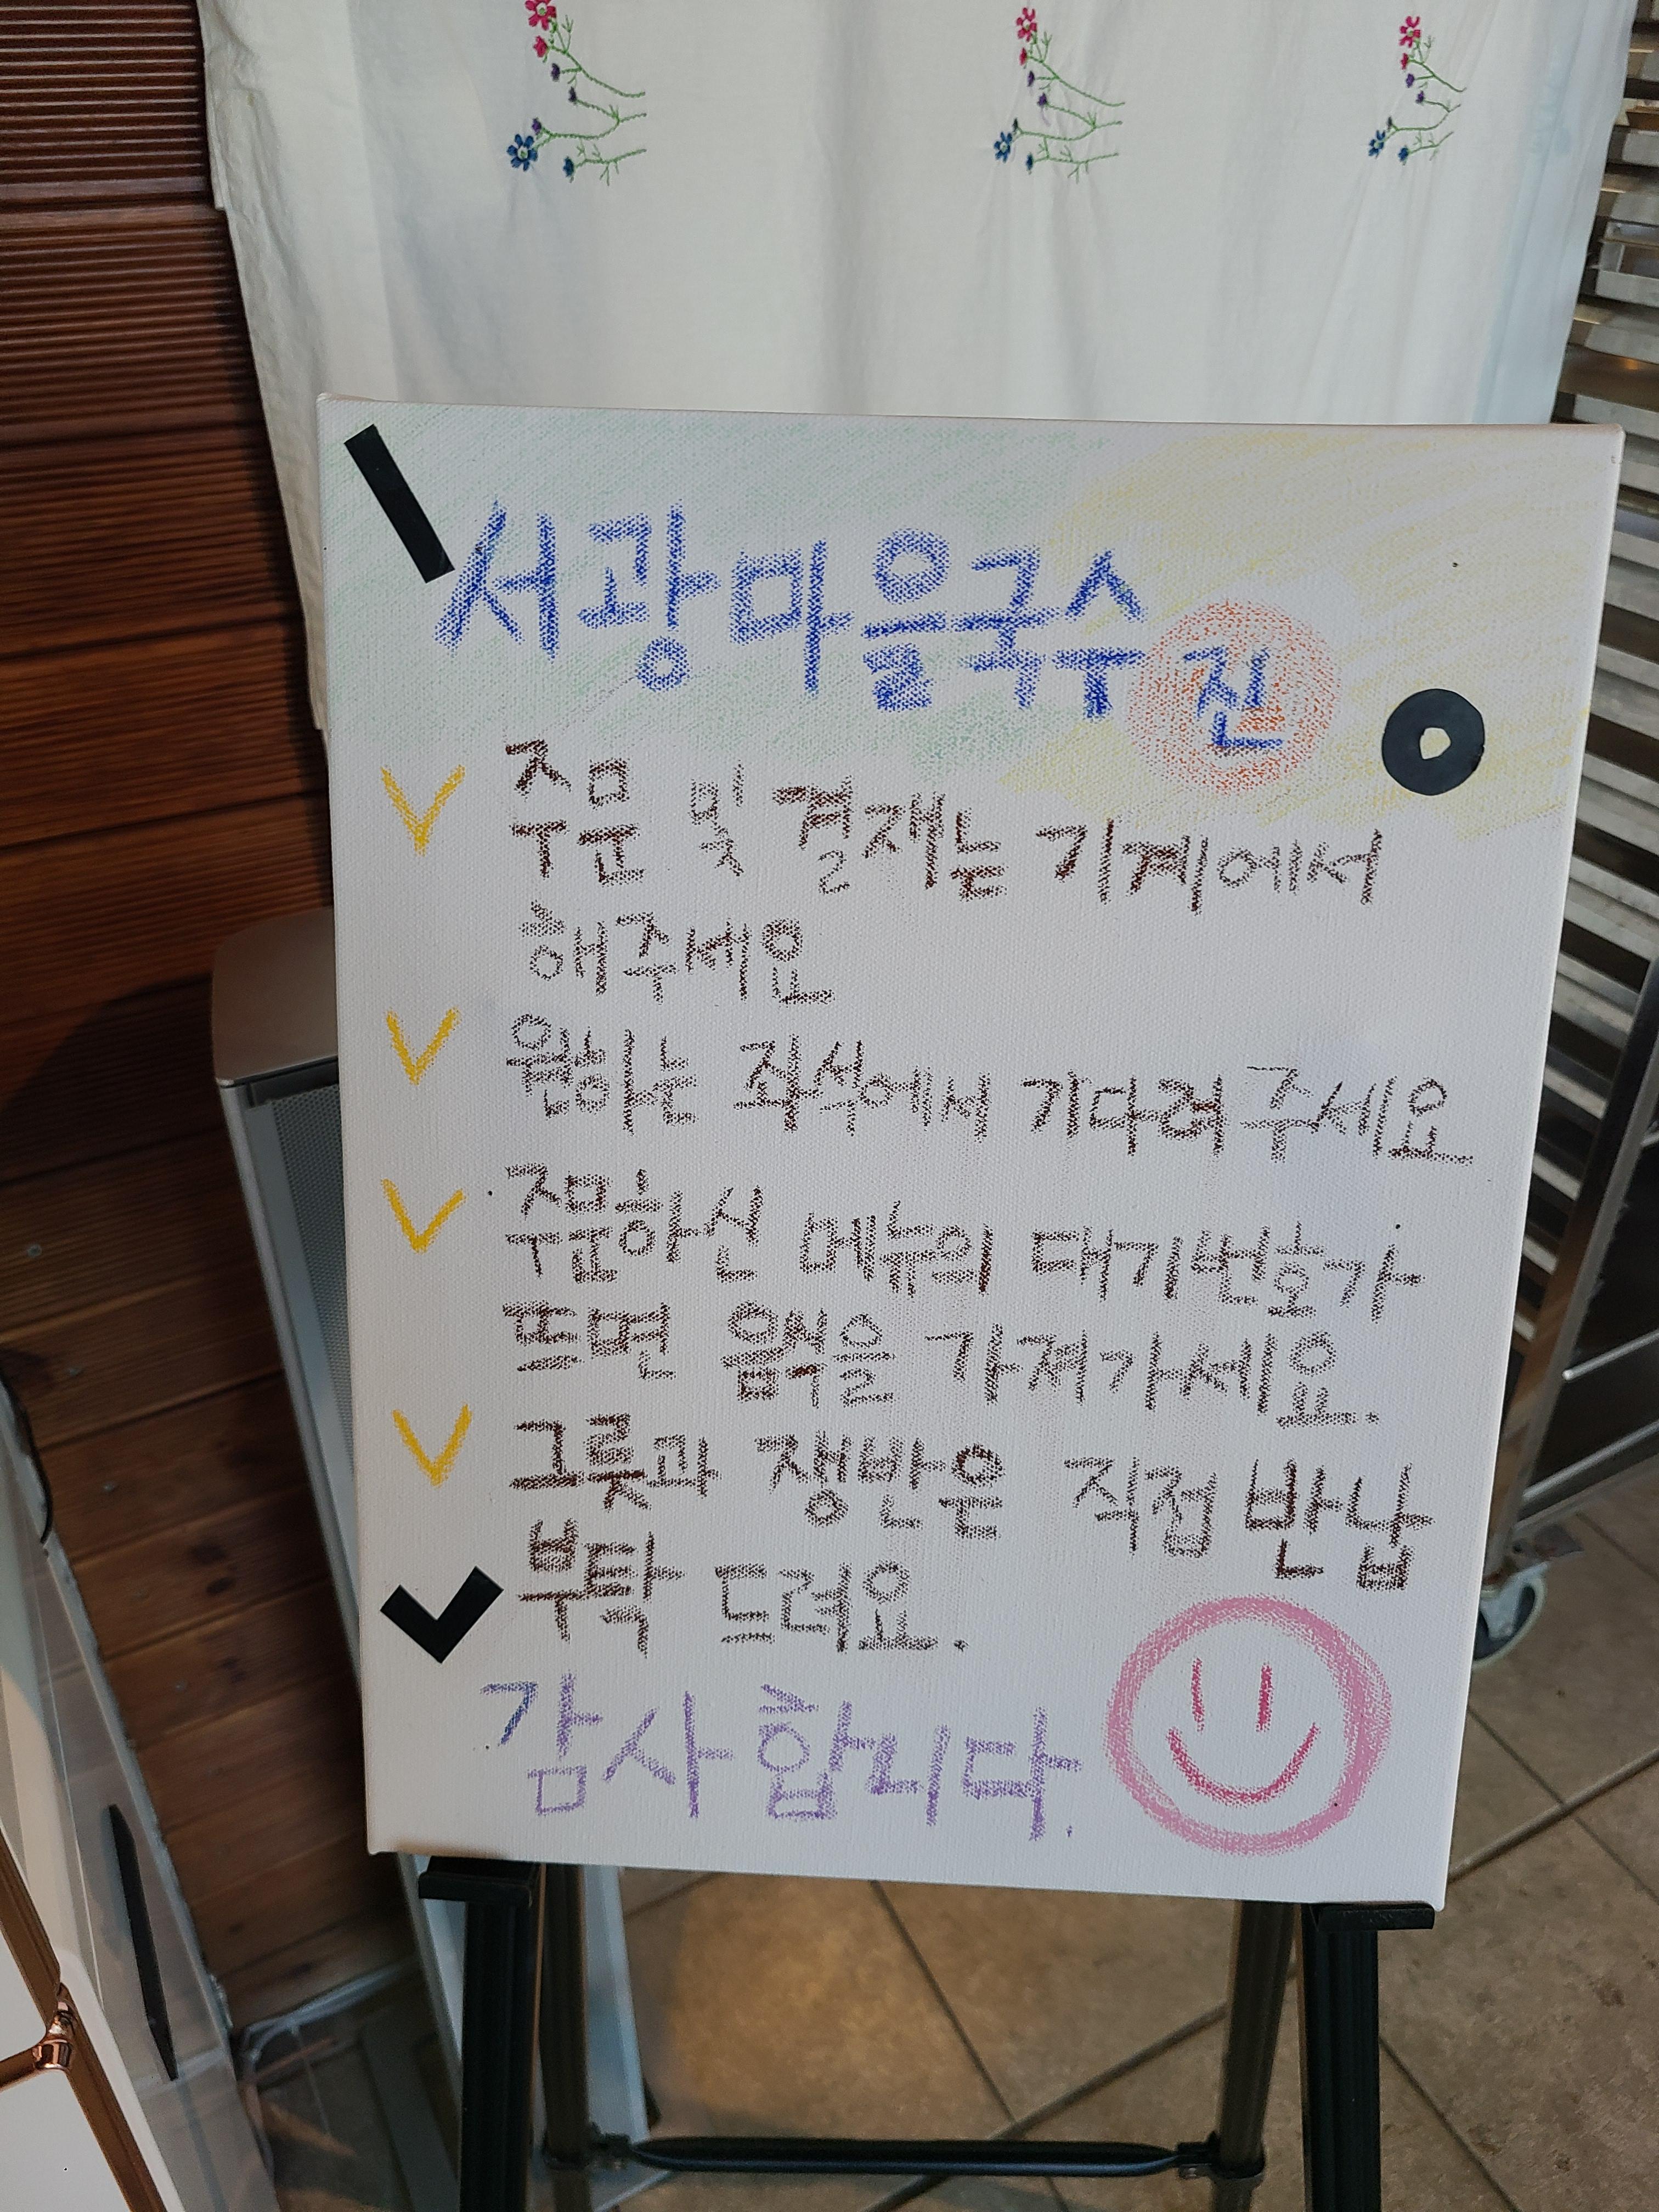 서광마을국수 진
주문 및 결재는 기계에서
해주세요
원하는 좌석에서 기다려주세요
주문하신 메뉴의 대기번호가
뜨면 음식을 가져가세요.
그릇과 쟁반은 직접 반납
부탁 드려요.
감사합니다.